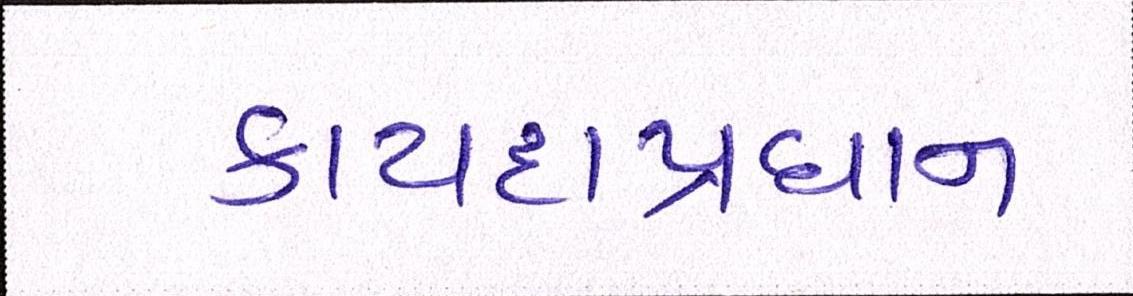 કાયદાપ્રધાન